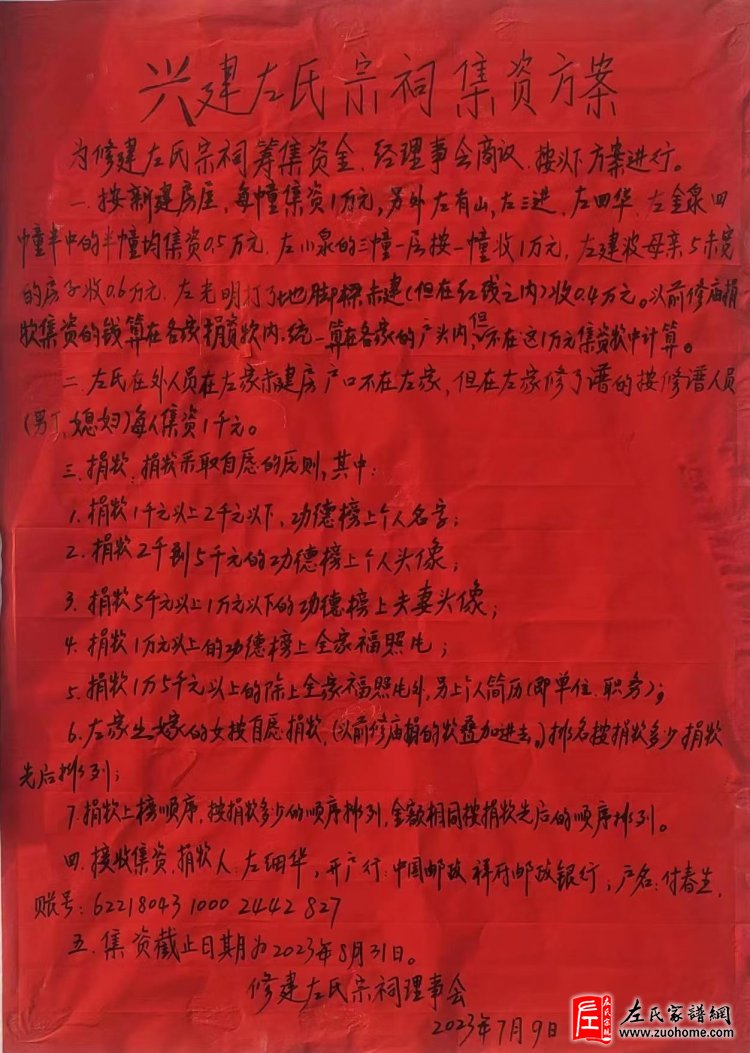 兴建左氏宗祠集资方案
为修建左氏宗祠筹集资金、经理事会商议、按以下方案进行。
一、按新建房屋,每幢集资1万元,另外左有山,左三进,左四华、左金泉四
幢半中的半幢均集资0.5万元、左小泉的三幢一层按一幢收1万元,左建波母亲5赤宽
的房子收0.6万元、左光明打了地脚梁未建(但在红线之内)收0.4万元。以前修庙捐
款集资的钱算在各家捐资款内、统一算在各家的户头内,但不在这1万元集资款中计算。
二、左氏在外人员在左家未建房户口不在左家,但在左家修了谱的按修谱人员
(男丁、媳妇)每人集资1千元。
三、捐款、捐款采取自愿的原则,其中:
1、捐款1千元以上2千元以下,功德榜上个人名字;
2、捐款2千到5千元的功德榜上个人头像;
3、捐款5千元以上1万元以下的功德榜上夫妻头像;
4、捐款1万元以上的功德榜上全家福照片;
5、捐款1万5千元以上的除上全家福照片外,另上个人简历(即单位、职务);
6、左家出嫁的女按自愿捐款,(以前修庙捐的款叠加进去。)排名按捐款多少捐款
先后排列;
7、捐款上榜顺序,按捐款多少的顺序排列,金额相同按捐款先后的顺序排列。
四、接收集资、捐款人:左细华,开户行:中国邮政祥府邮政银行;户名:付春生,
账号:62218043 1000 2442 827
五、集资截止日期为2023年8月31日。
修建左氏宗祠理事会
2023年7月9日
左氏宗親
左氏家譜網
www.zuohome.com